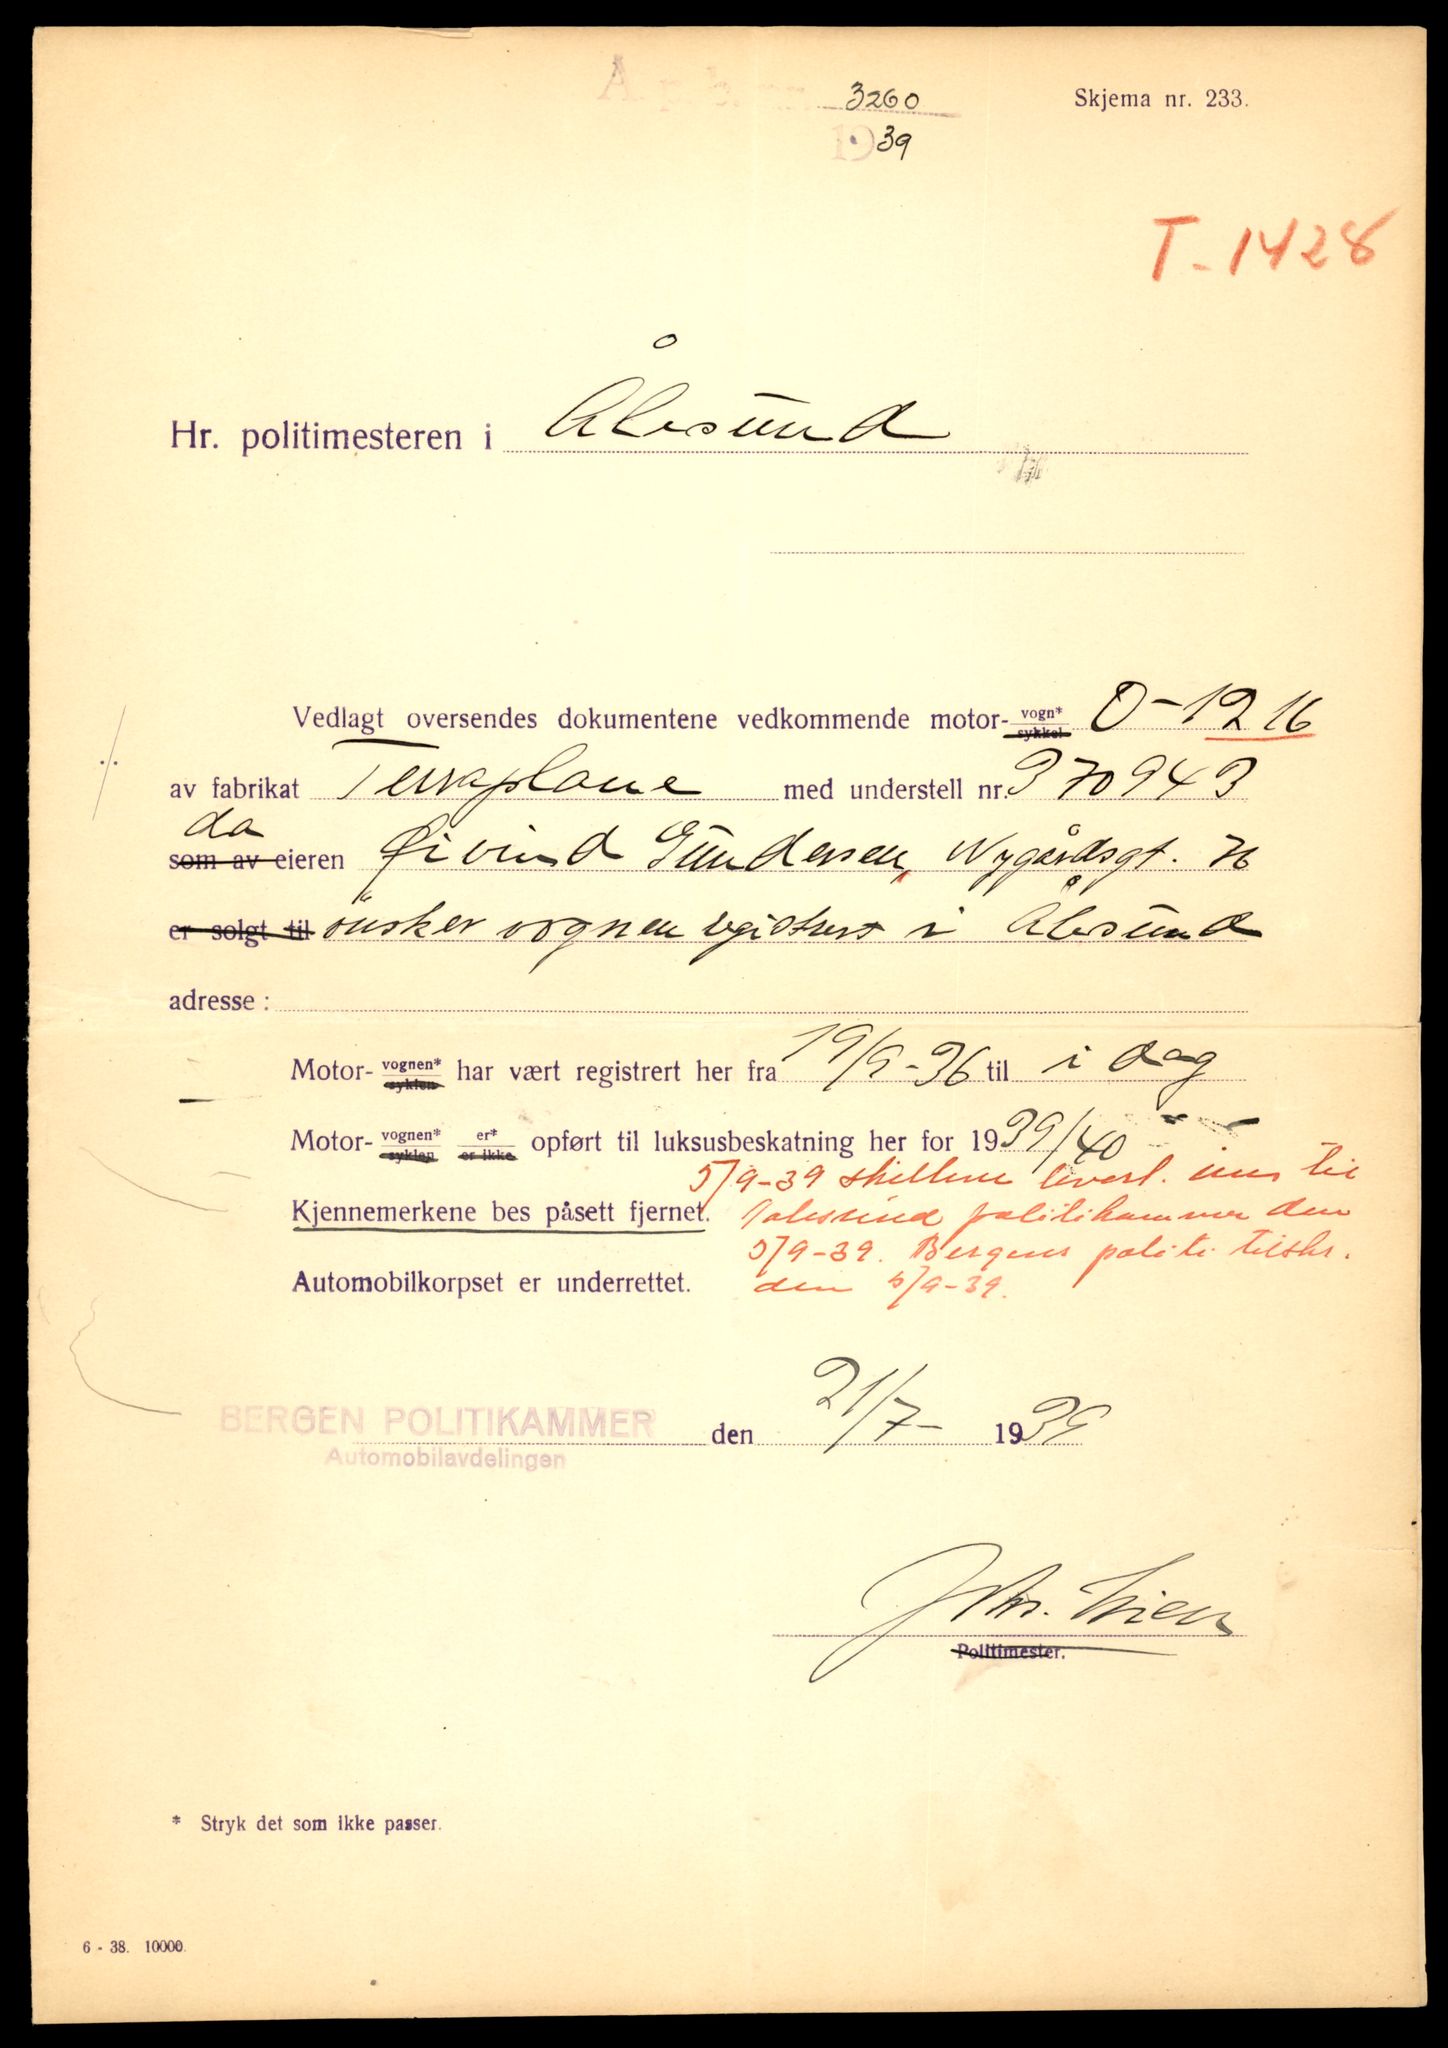 3260
Skjema nr. 233.
1939
T-1428
Hr. politimesteren i Ålesund
Vedlagt oversendes dokumentene vedkommende motor- vogn* sykkel O-1216
av fabrikat Terraplane med understell nr. 370943
da
som av eieren Øivind Gundersen, Nygårdsgt. 76
er solgt til ønsker vognen registrert i Ålesund
adresse:
Motor- vognen* syklen har vært registrert her fra 19/9-36 til i dag
Motor- vognen* syklen er* er ikke opført til luksusbeskatning her for 1939/40
5/9-39 skiltene levert inn til
Kjennemerkene bes påsett fjernet. Aalesund politikammer den
5/9-39. Bergens politi tilskr.
Automobilkorpset er underrettet. den 5/9-39.
BERGEN POLITIKAMMER den 21/7- 1939
Automobilavdelingen
Politimester.
* Stryk det som ikke passer.
6 - 38. 10000.